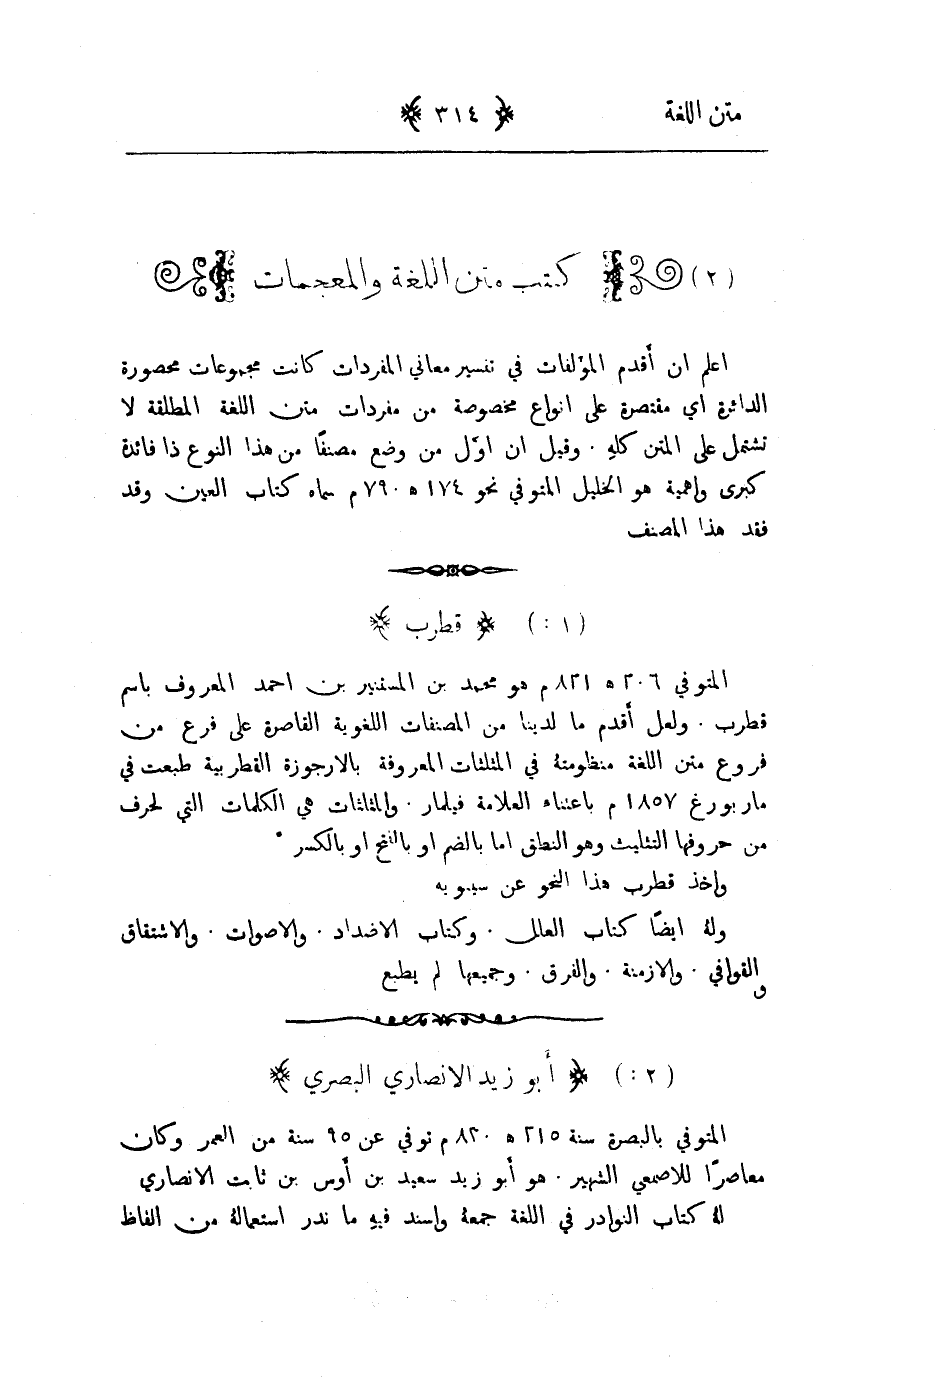 متن اللغة ﴿ ٣١٤ ﴾
(٢) كتب متن اللغة والمعجمات
اعلم ان أقدم المؤلفات في تفسير معاني المفردات كانت مجموعات محصورة
الدائرة اي مقتصرة على انواع مخصوصة من مفردات متن اللغة المطلقة لا
تشتمل على المتن كله · وقيل ان اوّل من وضع مصنفًا من هذا النوع ذا فائدة
كبرى واهمية هو الخليل المتوفي نحو ١٧٤ ه ٧٩٠ م سماه كتاب العين وقد
فقد هذا المصنف
(١ :) ﴿ قطرب ﴾
المتوفي ٢٠٦ ه ٨٢١ م هو محمد بن المستنير بن احمد المعروف باسم
قطرب · ولعل أقدم ما لدينا من المصنفات اللغوية القاصرة على فرع من
فروع متن اللغة منظومتهُ في المثلثات المعروفة بالارجوزة القطربية طبعت في
ماربورغ ١٨٥٧ م باعتناء العلامة فيلمار · والمثلثات هي الكلمات التي لحرف
من حروفها التثليث وهو النطق اما بالضم او بالفتح او بالكسر ·
واخذ قطرب هذا النحو عن سيبويه
ولهُ ايضًا كتاب العلل · وكتاب الاضداد · والاصوات · والاشتقاق
والقوافي · والازمنة · والفرق · وجميعها لم يطبع
(٢ :) ﴿ أبو زيد الانصاري البصري ﴾
المتوفي بالبصرة سنة ٢١٥ ه ٨٣٠ م توفي عن ٩٥ سنة من العمر وكان
معاصرًا للاصمعي الشهير · هو أبو زيد سعيد بن أوس بن ثابت الانصاري
لهُ كتاب النوادر في اللغة جمعهُ واسند فيهِ ما ندر استعمالهُ من الفاظ